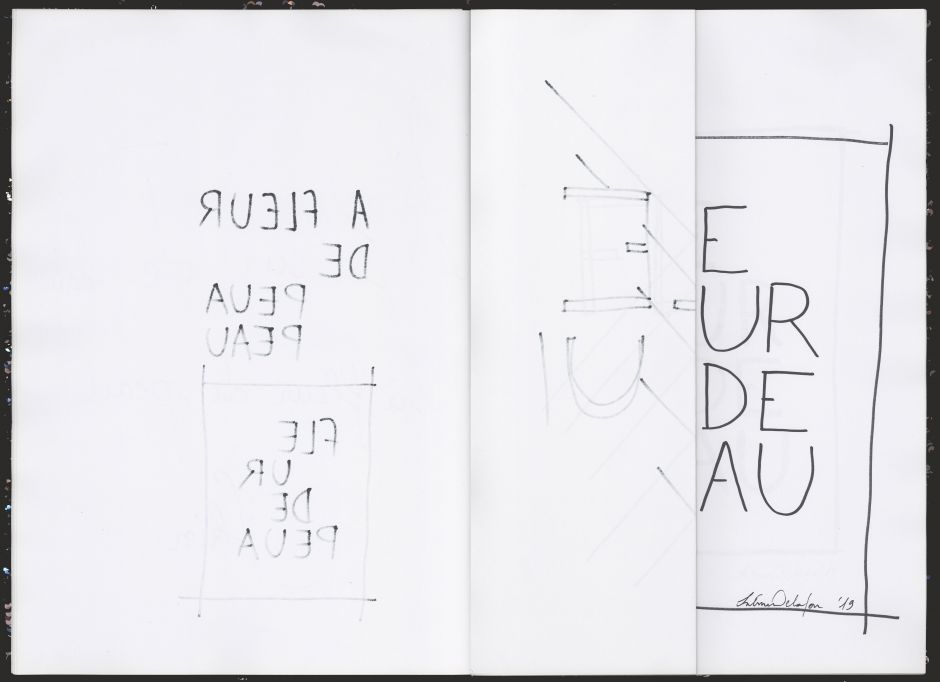 A FLEUR
DE
PEUA
PEAU
FLE
UR
DE
PEUA
E
U
E
UR
DE
AU
'19